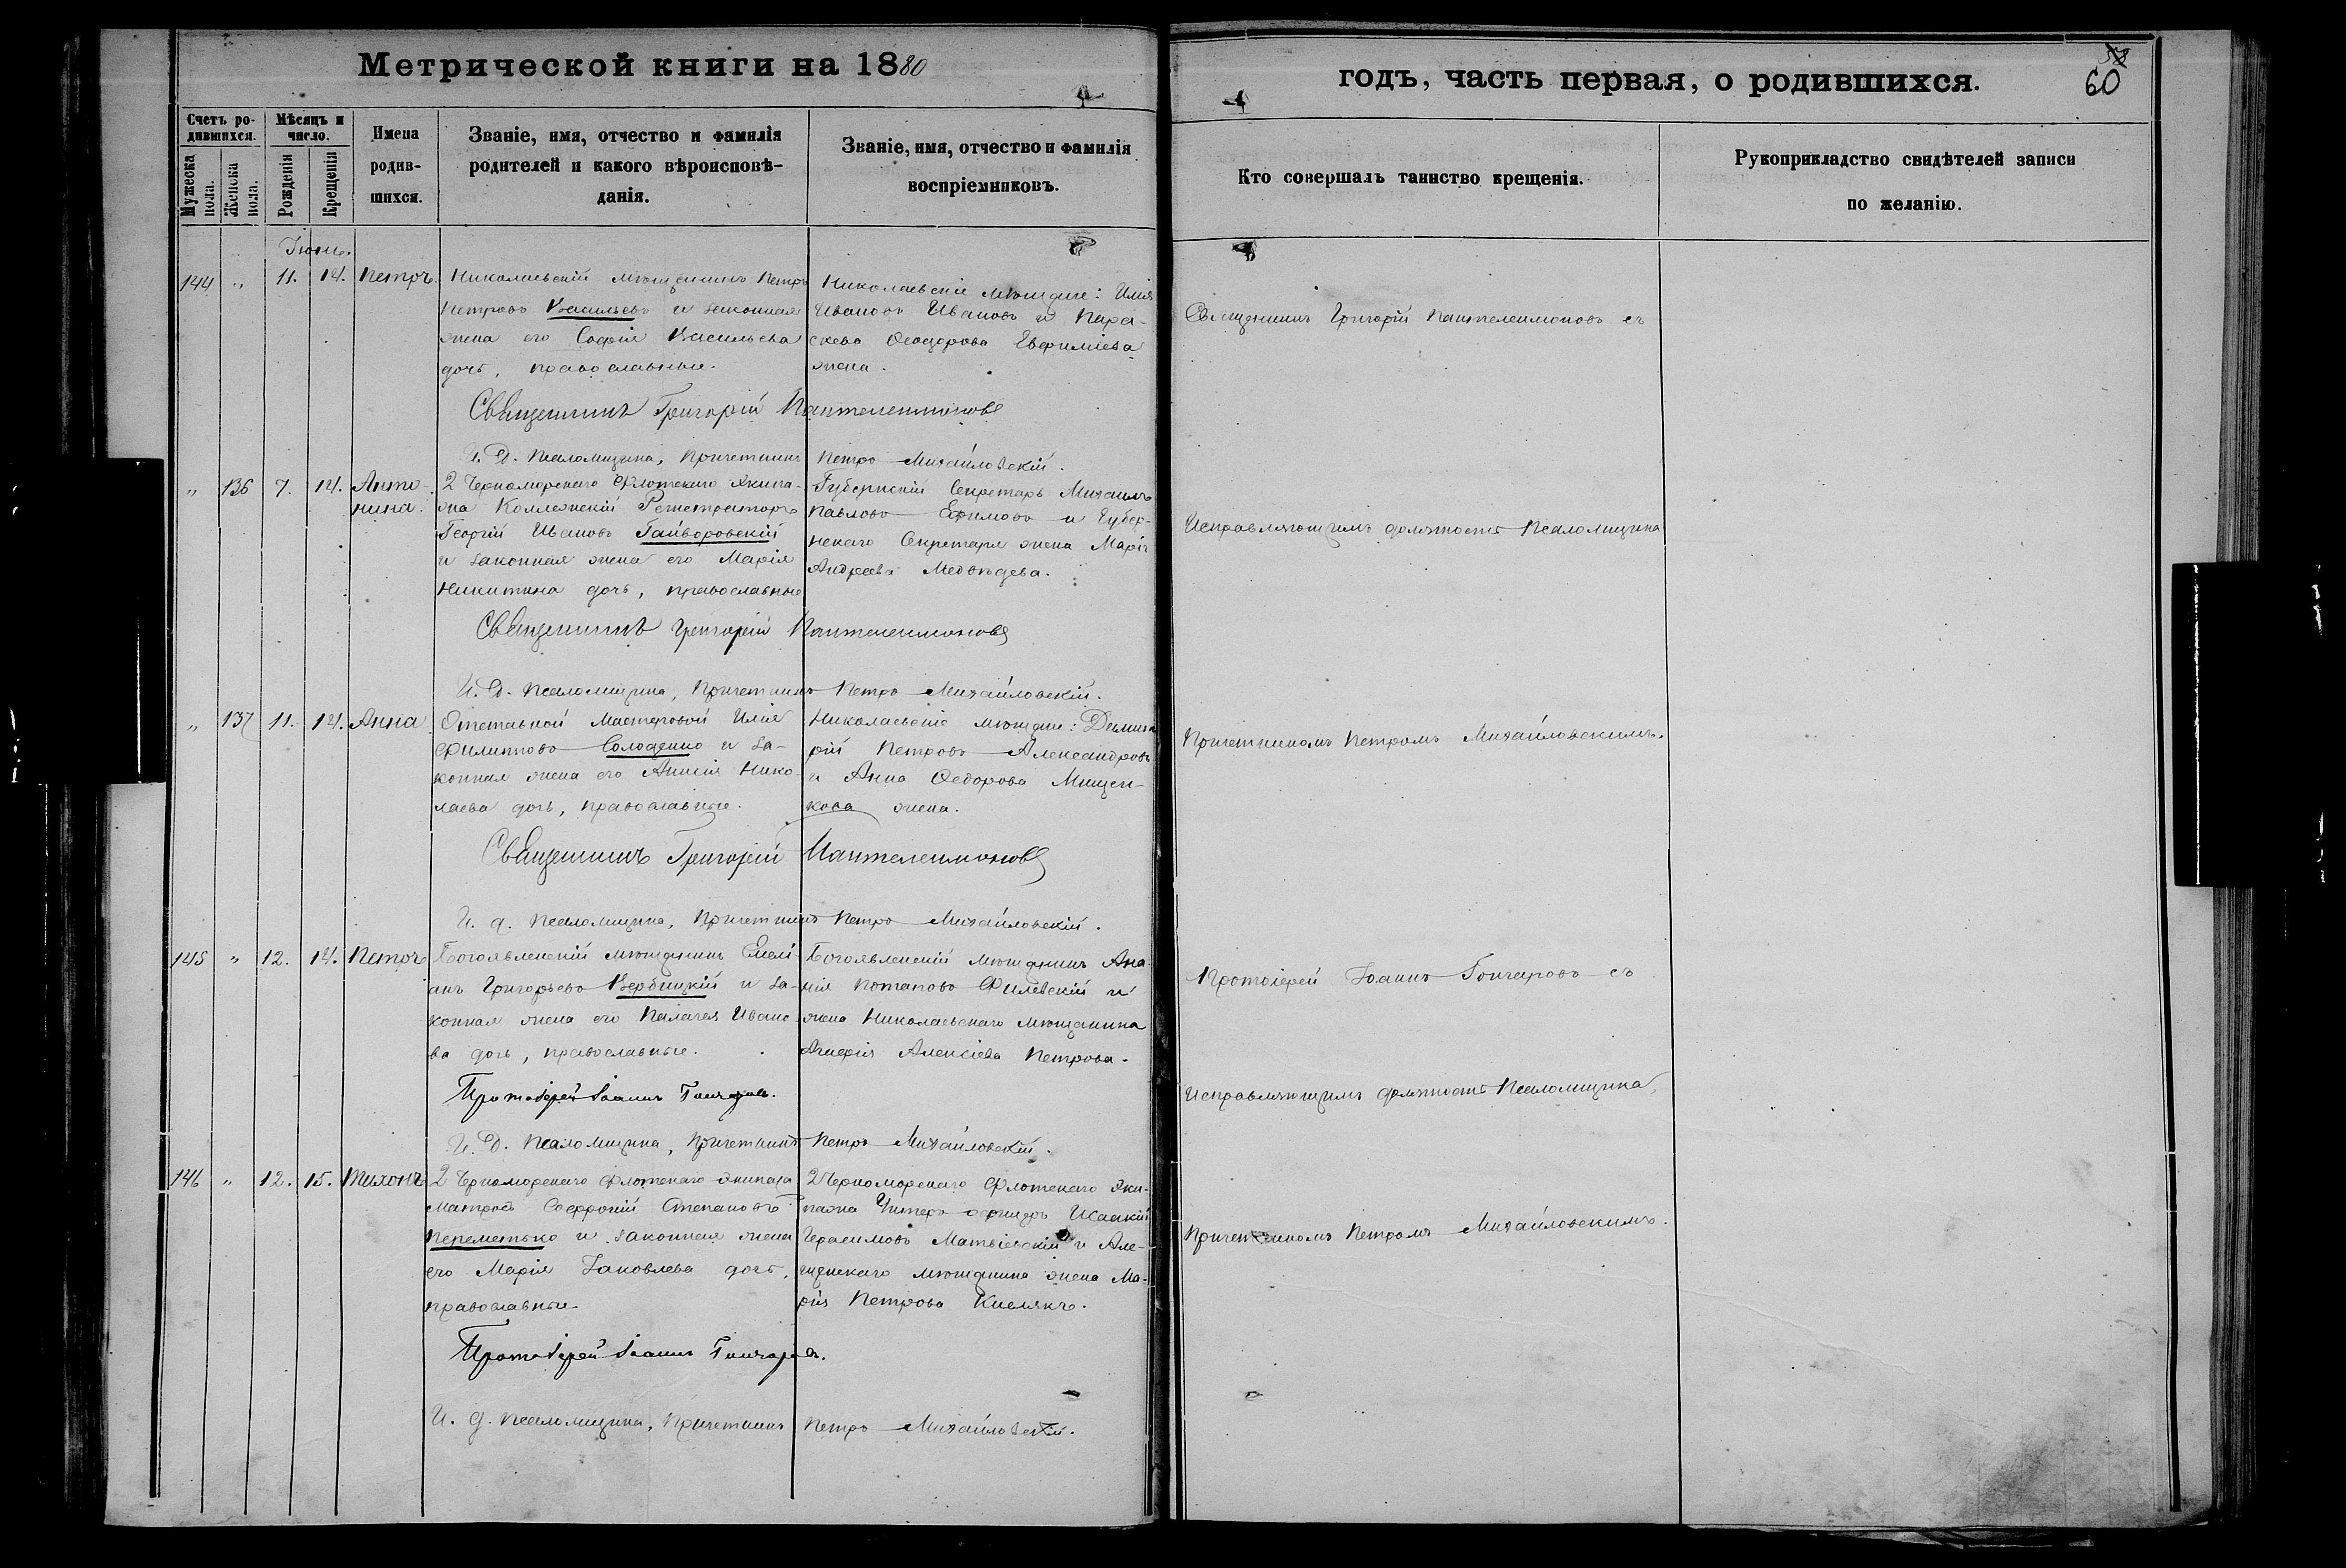 Метрической книги на 1880
Счетъ ро-
дившихся.
Мужеска
пола.
Женска
пола.
Мѣсяцъ и
число.
Рожденія
Крещенія
Имена
родив-
шихся.
Званіе, имя, отчество и фамилія
родителей и какого вѣроисповѣ-
данія.
Званіе, имя, отчество и фамилія
воспріемниковъ.
Іюнь.
144 „ 11. 14. Петръ.
Николаевскій мѣщанинъ Петръ
Петровъ Васильевъ и законная
жена его Софія Васильева
дочь, православные.
Николаевскіе мѣщане: Илія
Ивановъ Ивановъ и Пара-
скева Ѳеодорова Евфиміева
жена.
Священникъ Григорій Пантелеимоновъ
И. Д. Псаломщика, Причетникъ Петръ Михайловскій.
„ 136 7. 14. Анто-
нина.
2 Черноморскаго Флотскаго Экипа-
жа Коллежскій Регистраторъ
Георгій Ивановъ Гайворовскій
и законная жена его Марія
Никитина дочь, православные
Губернскій Секретарь Михаилъ
Павловъ Ефимовъ и Губер-
нскаго Секретаря жена Марія
Андреева Медвѣдева.
Священникъ Григорій Пантелеимоновъ
И. Д. Псаломщика, Причетникъ Петръ Михайловскій.
„ 137 11. 14. Анна
Отставной Мастеровой Илія
Филипповъ Солоденко и за-
конная жена его Анисія Нико-
лаева дочь, православные.
Николаевскіе мѣщане: Димит
рій Петровъ Александровъ
и Анна Ѳедорова Мищен-
кова жена.
Священникъ Григорій Пантелеимоновъ
И. д. Псаломщика, Причетникъ Петръ Михайловскій.
145 „ 12. 14. Петръ
Богоявленскій мѣщанинъ Емелі-
анъ Григорьевъ Вербицкій и за-
конная жена его Палагея Ивано-
ва дочь, православные.
Богоявленскій мѣщанинъ Ана-
нія Потаповъ Филевскій и
жена Николаевскаго мѣщанина
Агафія Алексіева Петрова.
Протоіерей Іоаннъ Гончаровъ.
И. Д. Псаломщика, Причетникъ Петръ Михайловскій.
146 „ 12. 15. Тихонъ
2 Черноморскаго флотскаго экипажа
Матросъ Софроній Степановъ
Переметько и законная жена
его Марія Іаковлева дочь,
православные
2 Черноморскаго Флотскаго Эки-
пажа Унтеръ-офицеръ Исаакій
Герасимовъ Матвіевскій и Але-
шковскаго мѣщанина жена Ма-
рія Петрова Кислякъ.
Протоіерей Іоаннъ Гончаровъ.
И. д. Псаломщика, Причетникъ Петръ Михайловскій.
годъ, часть первая, о родившихся.
58
60
Кто совершалъ таинство крещенія.
Рукоприкладство свидѣтелей записи
по желанію.
Священникъ Григорій Пантелеимоновъ съ
Исправляющимъ должность Псаломщика
Причетникомъ Петромъ Михайловскимъ.
Протоіерей Іоаннъ Гончаровъ съ
Исправляющимъ должность Псаломщика,
Причетникомъ Петромъ Михайловскимъ.